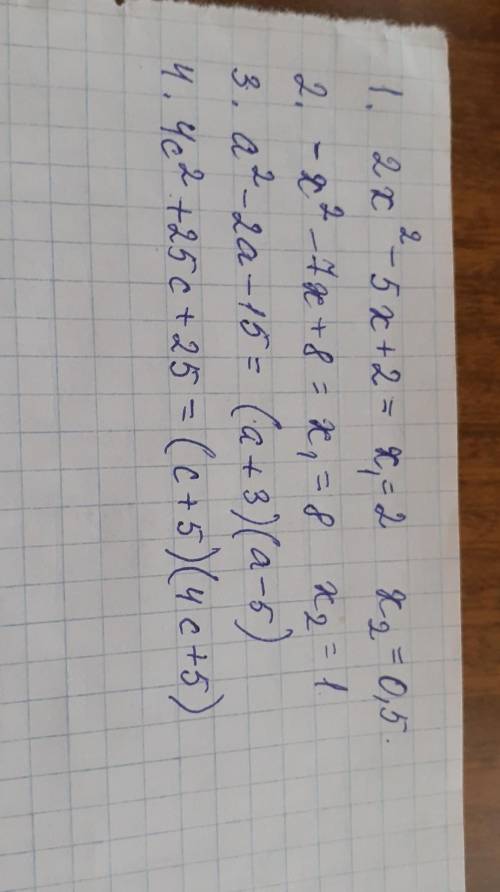 1. 2x² - 5x + 2 = x₁ = 2 x₂ = 0,5.
2. - x² - 7x + 8 = x₁ = 8 x₂ = 1
3. a² - 2a - 15 = (a + 3)(a - 5)
4. 4c² + 25c + 25 = (c + 5)(4c + 5)